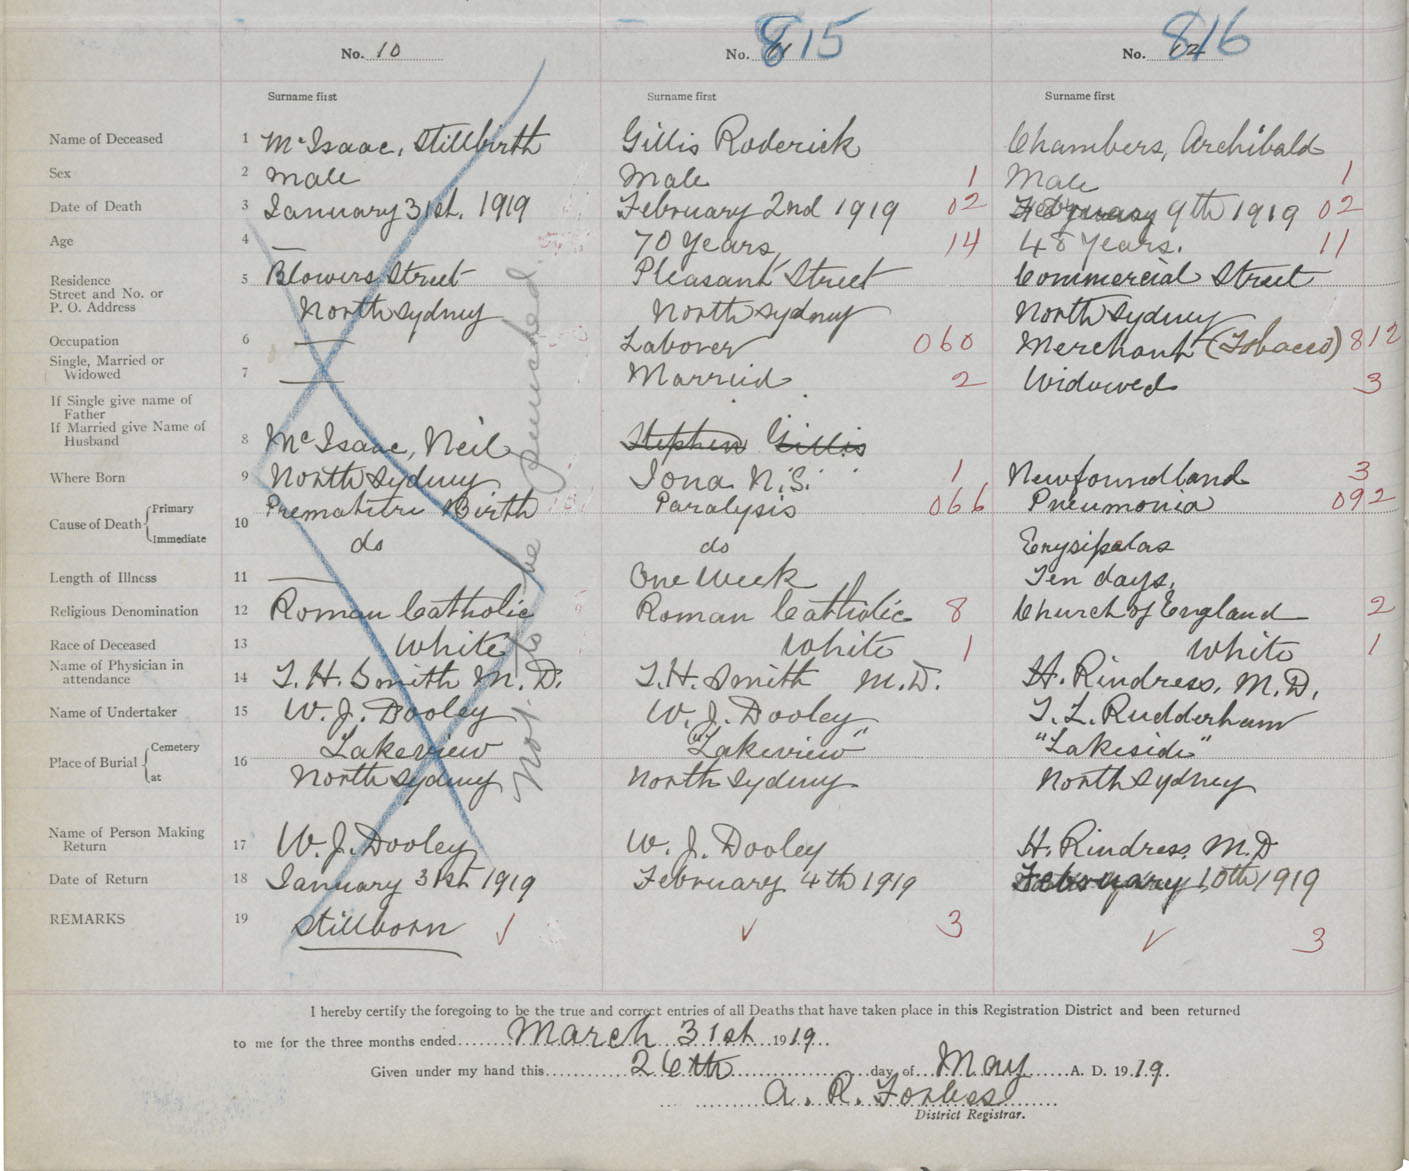 No. 10
No. 11 815
No. 12 816
Surname first
Surname first
Surname first
Name of Deceased 1 McIsaac, Stillbirth
Gillis Roderick
Chambers, Archibald
Sex 2 Male
Male 1
Male 1
Date of Death 3 January 31st. 1919
February 2nd 1919 02
February 9th 1919 02
Age 4 —
70 Years, 14
48 Years. 11
Residence
Street and No. or
P. O. Address
5 Blowers Street
North Sydney
Pleasant Street
North Sydney
Commercial Street
North Sydney
Occupation 6 —
Laborer 060
Merchant (Tobacco) 812
Single, Married or
Widowed
7 —
Married 2
Widowed 3
If Single give name of
Father
If Married give Name of
Husband
8 McIsaac, Neil
Stephen Gillis
Where Born 9 North Sydney
Iona N.S. 1
Newfoundland 3
Cause of Death { Primary
Immediate
10
Premature Birth
do
Paralysis 066
do
Pneumonia 092
Erysipelas
Length of Illness 11 —
One Week
Ten days.
Religious Denomination 12 Roman Catholic
Roman Catholic 8
Church of England 2
Race of Deceased 13 White
White 1
White 1
Name of Physician in
attendance
14 T. H. Smith M. D.
T. H. Smith M. D.
H. Rindress, M. D.
Name of Undertaker 15 W. J. Dooley
W. J. Dooley
T. L. Rudderham
Place of Burial { Cemetery
at
16
Lakeview
North Sydney
"Lakeview"
North Sydney
"Lakeside"
North Sydney
Name of Person Making
Return
17 W. J. Dooley
W. J. Dooley
H. Rindress M. D
Date of Return 18 January 31st 1919
February 4th 1919
February 10th 1919
REMARKS 19 Stillborn ✓
✓ 3
✓ 3
Not to be punched.
I hereby certify the foregoing to be the true and correct entries of all Deaths that have taken place in this Registration District and been returned
to me for the three months ended March 31st 1919.
Given under my hand this 26th day of May A. D. 1919.
A. R. Forbess
District Registrar.